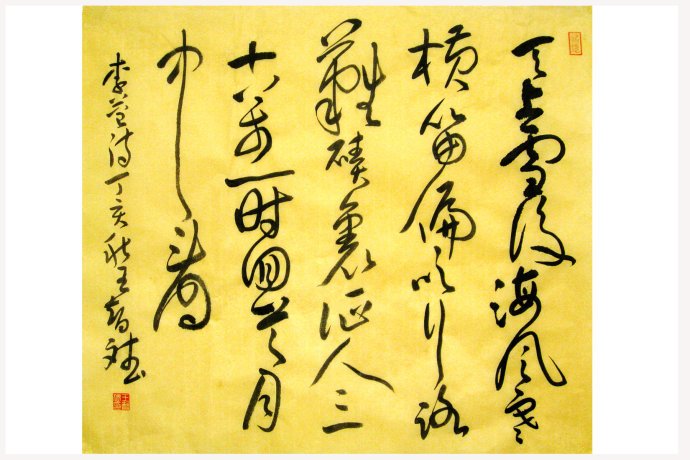 天山雪後海風寒
横笛偏吹行路
難磧裏征人三
十万一时回首月
中看
李益诗丁亥秋王智斌